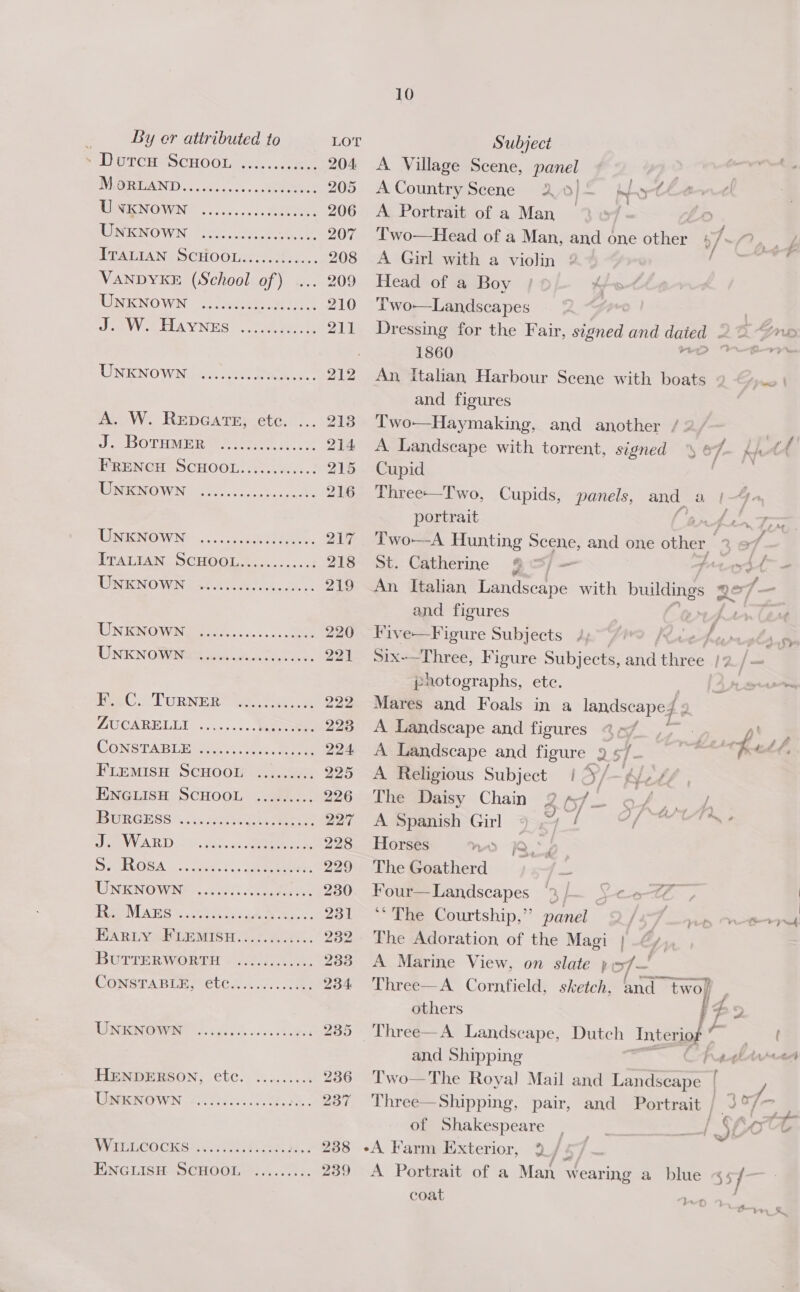 10
By or attributed to LOT Subject
DUTCH SCHOOL ............ 204 A Village Scene, panel
MORLAND..................... 205 A Country Scene
UNKNOWN .................. 206 A Portrait of a Man
UNKNOWN .................. 207 Two—Head of a Man, and one other
ITALIAN SCHOOL............ 208 A Girl with a violin
VANDYKE (School of) ... 209 Head of a Boy
UNKNOWN .................. 210 Two—Landscapes
J. W. HAYNES ............ 211 Dressing for the Fair, signed and dated
1860
UNKNOWN .................. 212 An Italian Harbour Scene with boats
and figures
A. W. REDGATE, etc. ... 213 Two—Haymaking, and another
J. BOTHMER ............... 214 A Landscape with torrent, signed
FRENCH SCHOOL............ 215 Cupid
UNKNOWN .................. 216 Three—Two, Cupids, panels, and a
portrait
UNKNOWN .................. 217 Two—A Hunting Scene, and one other
ITALIAN SCHOOL............ 218 St. Catherine
UNKNOWN .................. 219 An Italian Landscape with buildings
and figures
UNKNOWN .................. 220 Five—Figure Subjects
UNKNOWN .................. 221 Six—Three, Figure Subjects, and three
photographs, etc.
F. C. TURNER ............ 222 Mares and Foals in a landscape
ZUCARELLI .................. 223 A Landscape and figures
CONSTABLE .................. 224 A Landscape and figure
FLEMISH SCHOOL ......... 225 A Religious Subject
ENGLISH SCHOOL ......... 226 The Daisy Chain
BURGESS ..................... 227 A Spanish Girl
J. WARD ..................... 228 Horses
S. ROSA ..................... 229 The Goatherd
UNKNOWN .................. 230 Four—Landscapes
R. MARS ..................... 231 “The Courtship,” panel
EARLY FLEMISH............ 232 The Adoration of the Magi
BUTTERWORTH ............ 233 A Marine View, on slate
CONSTABLE, etc............. 234 Three—A Cornfield, sketch, and two
others
UNKNOWN .................. 235 Three—A Landscape, Dutch Interior
and Shipping
HENDERSON, etc. ......... 236 Two—The Royal Mail and Landscape
UNKNOWN .................. 237 Three—Shipping, pair, and Portrait
of Shakespeare
WILLCOCKS .................. 238 A Farm Exterior,
ENGLISH SCHOOL ......... 239 A Portrait of a Man wearing a blue
coat